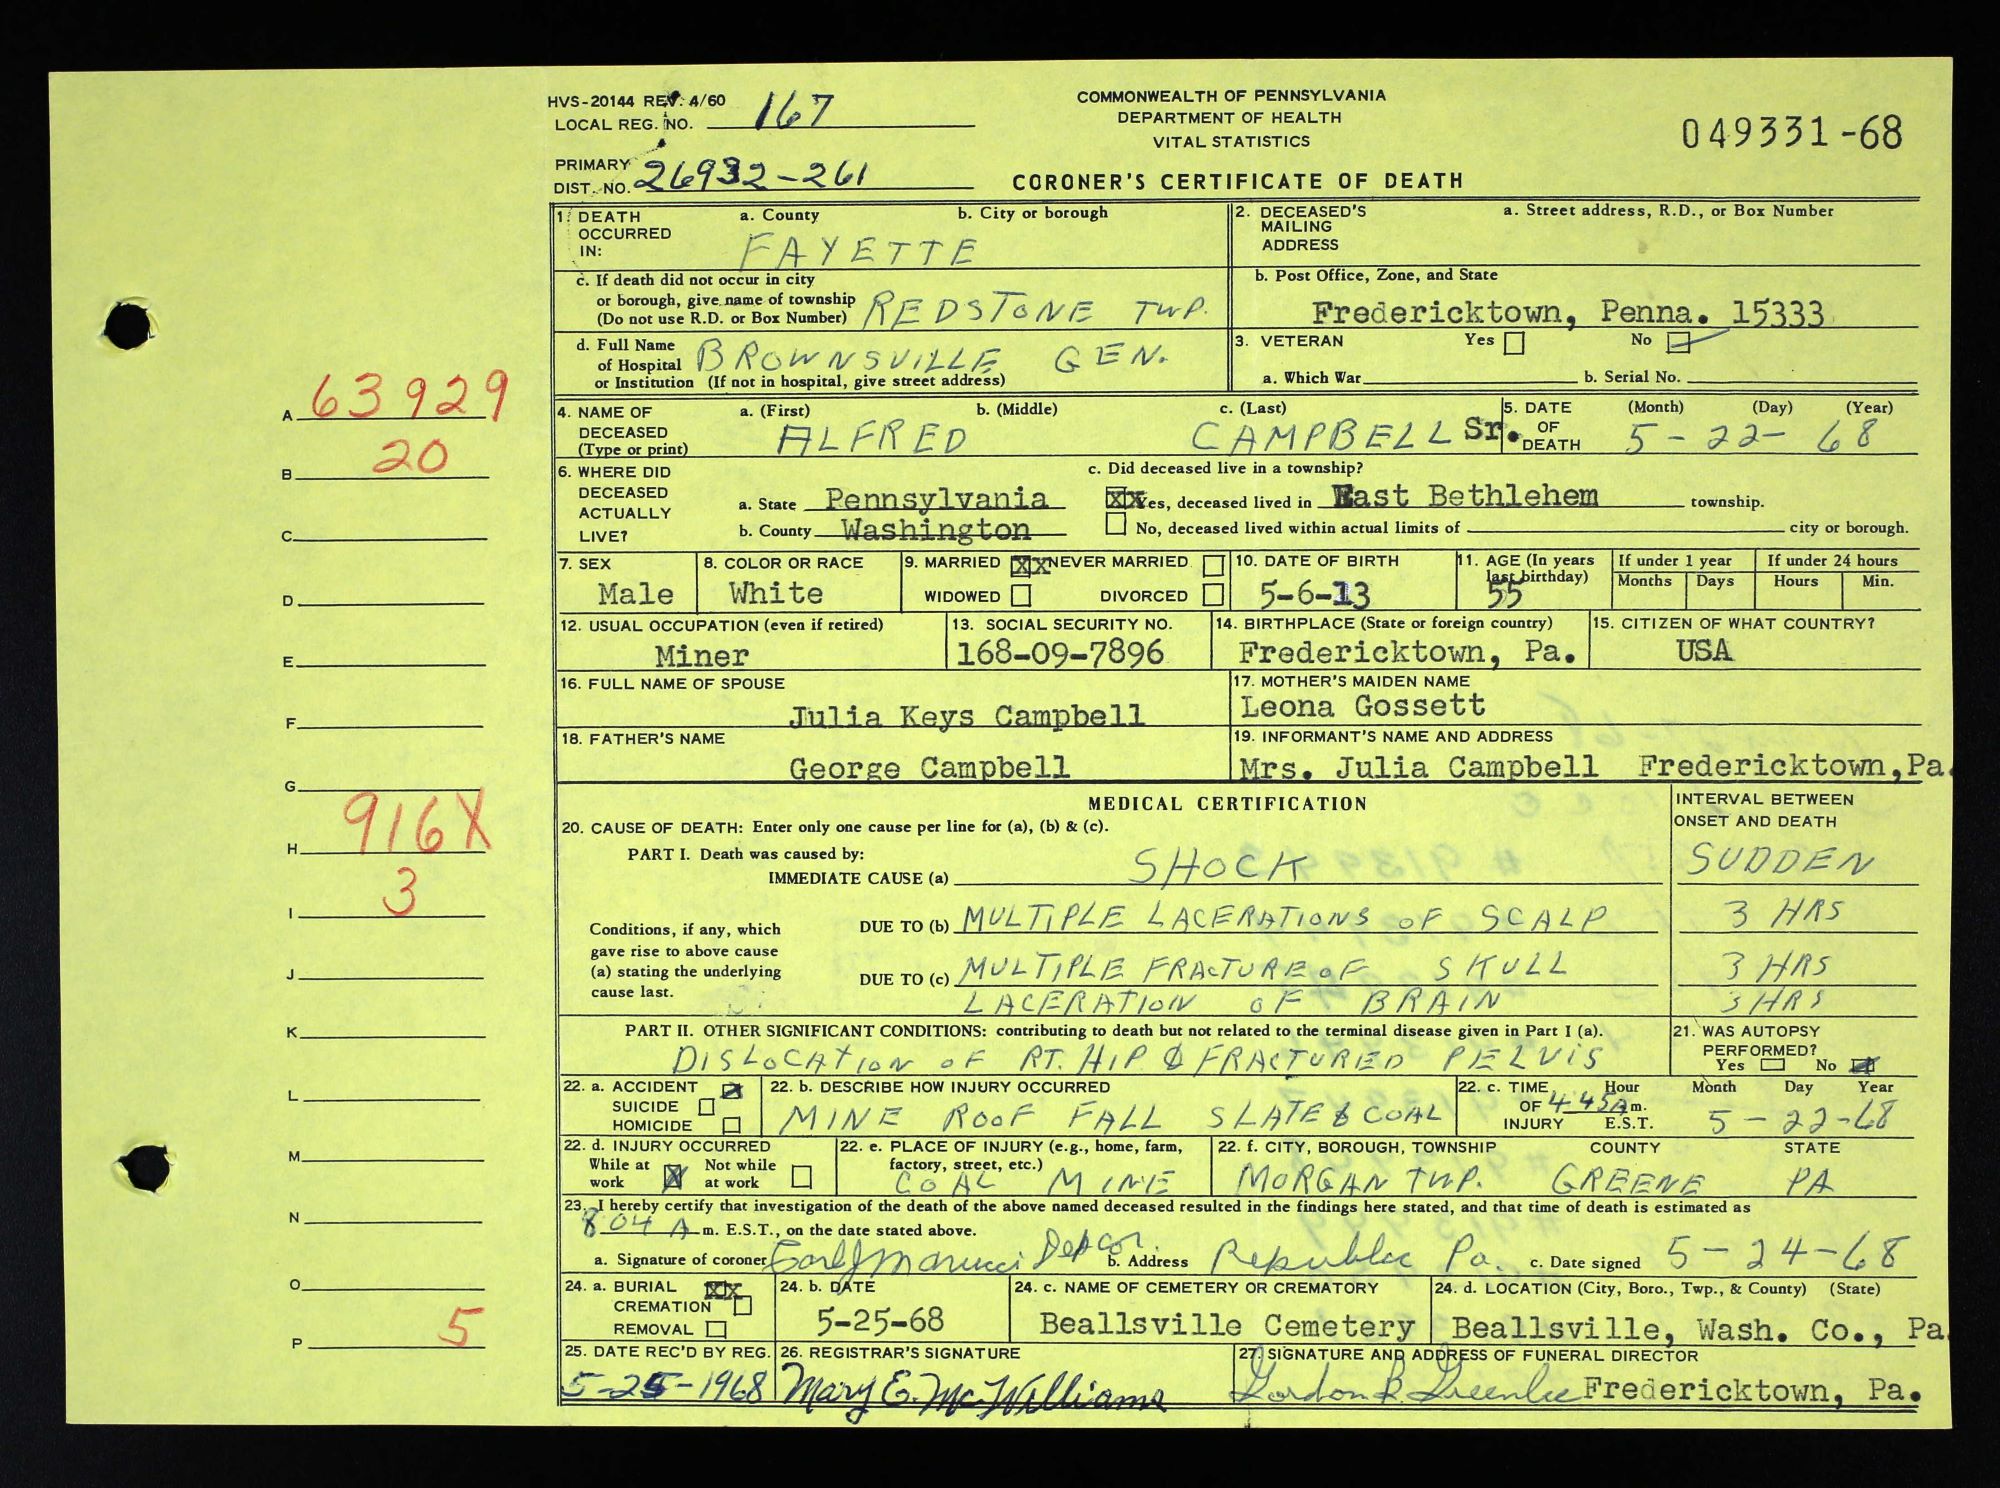 HVS-20144 REV. 4/60
LOCAL REG. NO. 167
PRIMARY DIST. NO. 26932-261
COMMONWEALTH OF PENNSYLVANIA
DEPARTMENT OF HEALTH
VITAL STATISTICS
CORONER'S CERTIFICATE OF DEATH
049331-68
1. DEATH OCCURRED IN: a. County FAYETTE b. City or borough
c. If death did not occur in city or borough, give name of township (Do not use R.D. or Box Number) REDSTONE TWP.
d. Full Name of Hospital or Institution (If not in hospital, give street address) BROWNSVILLE GEN.
2. DECEASED'S MAILING ADDRESS a. Street address, R.D., or Box Number
b. Post Office, Zone, and State
Fredericktown, Penna. 15333
3. VETERAN Yes No
a. Which War b. Serial No.
4. NAME OF DECEASED (Type or print) a. (First) ALFRED b. (Middle) c. (Last) CAMPBELL Sr.
5. DATE OF DEATH (Month) (Day) (Year) 5-22-68
6. WHERE DID DECEASED ACTUALLY LIVE? a. State Pennsylvania
b. County Washington
c. Did deceased live in a township?
XX Yes, deceased lived in East Bethlehem township.
No, deceased lived within actual limits of city or borough.
7. SEX Male
8. COLOR OR RACE White
9. MARRIED XX NEVER MARRIED
WIDOWED DIVORCED
10. DATE OF BIRTH 5-6-13
11. AGE (In years last birthday) 55
If under 1 year Months Days
If under 24 hours Hours Min.
12. USUAL OCCUPATION (even if retired) Miner
13. SOCIAL SECURITY NO. 168-09-7896
14. BIRTHPLACE (State or foreign country) Fredericktown, Pa.
15. CITIZEN OF WHAT COUNTRY? USA
16. FULL NAME OF SPOUSE Julia Keys Campbell
17. MOTHER'S MAIDEN NAME Leona Gossett
18. FATHER'S NAME George Campbell
19. INFORMANT'S NAME AND ADDRESS Mrs. Julia Campbell Fredericktown, Pa.
MEDICAL CERTIFICATION
INTERVAL BETWEEN ONSET AND DEATH
20. CAUSE OF DEATH: Enter only one cause per line for (a), (b) & (c).
PART I. Death was caused by:
IMMEDIATE CAUSE (a) SHOCK SUDDEN
Conditions, if any, which gave rise to above cause (a) stating the underlying cause last.
DUE TO (b) MULTIPLE LACERATIONS OF SCALP 3 HRS
DUE TO (c) MULTIPLE FRACTURE OF SKULL 3 HRS
LACERATION OF BRAIN 3 HRS
PART II. OTHER SIGNIFICANT CONDITIONS: contributing to death but not related to the terminal disease given in Part I (a).
DISLOCATION OF RT. HIP & FRACTURED PELVIS
21. WAS AUTOPSY PERFORMED?
Yes No
22. a. ACCIDENT
SUICIDE
HOMICIDE
22. b. DESCRIBE HOW INJURY OCCURRED
MINE ROOF FALL SLATE & COAL
22. c. TIME OF INJURY Hour 4 45 A m. E.S.T. Month Day Year 5-22-68
22. d. INJURY OCCURRED
While at work X Not while at work
22. e. PLACE OF INJURY (e.g., home, farm, factory, street, etc.)
COAL MINE
22. f. CITY, BOROUGH, TOWNSHIP COUNTY STATE
MORGAN TWP. GREENE PA
23. I hereby certify that investigation of the death of the above named deceased resulted in the findings here stated, and that time of death is estimated as
8 04 A m. E.S.T., on the date stated above.
a. Signature of coroner Earl J Marucci Dep Cor. b. Address Republic Pa. c. Date signed 5-24-68
24. a. BURIAL XX
CREMATION
REMOVAL
24. b. DATE 5-25-68
24. c. NAME OF CEMETERY OR CREMATORY Beallsville Cemetery
24. d. LOCATION (City, Boro., Twp., & County) (State) Beallsville, Wash. Co., Pa
25. DATE REC'D BY REG. 5-25-1968
26. REGISTRAR'S SIGNATURE Mary E. McWilliams
27. SIGNATURE AND ADDRESS OF FUNERAL DIRECTOR Gordon R. Greenlee Fredericktown, Pa.
A 63929
B 20
C
D
E
F
G
H 916X
I 3
J
K
L
M
N
O
P 5